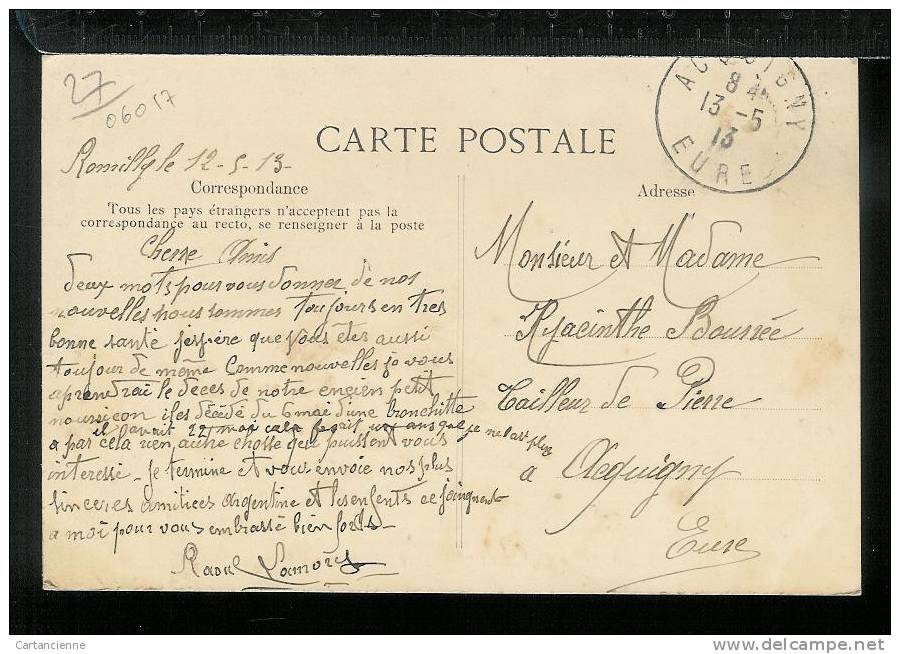 27
06017
ACQUIGNY
8 45
13 - 5
13
EURE
CARTE POSTALE
Romilly le 12-5-13-
Correspondance
Tous les pays étrangers n'acceptent pas la
correspondance au recto, se renseigner à la poste
Cherre Amis
deux mots pour vous donner de nos
nouvelles nous sommes toujours en tres
bonne santé jespière que vous etes aussi
toujour de même Comme nouvelles je vous
aprendrai le deces de notre encien petit
nourriçon il es décédé du 6 mai d'une bronchitte
il avait 22 moi cela fesait un ans que je ne l'avait plus
a par cela rien autre chosse qui puissent vous
interesse - Je termine et vous envoie nos plus
sinceres amitiees Argentine et les enfents ce joingnent
a moi pour vous embrassé bien forts -
Raoul
Adresse
Monsieur et Madame
Hyacinthe Bourrée
Tailleur de Pierre
a Acquigny
Eure
Cartancienne
www.delcampe.net